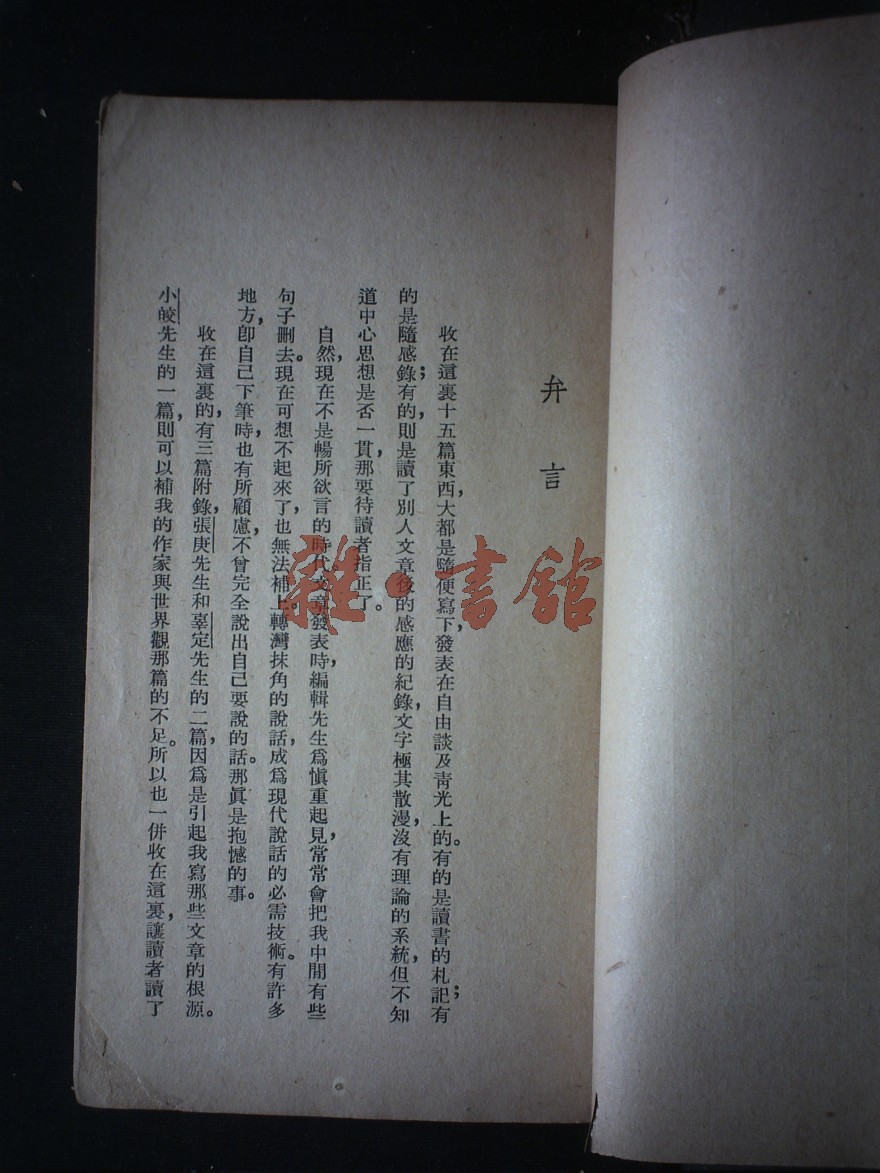 弁言
收在這裏十五篇東西，大都是隨便寫下，發表在自由談及靑光上的。有的是讀書的札記；有
的是隨感錄；有的，則是讀了別人文章後的感應的紀錄，文字極其散漫，沒有理論的系統，但不知
道中心思想是否一貫，那要待讀者指正了。
自然，現在不是暢所欲言的時代，文章發表時，編輯先生爲愼重起見，常常會把我中間有些
句子刪去。現在可想不起來了，也無法補上。轉灣抹角的說話，成爲現代說話的必需技術。有許多
地方，卽自己下筆時，也有所顧慮，不曾完全說出自己要說的話。那眞是抱憾的事。
收在這裏的，有三篇附錄，張庚先生和辜定先生的二篇，因爲是引起我寫那些文章的根源。
小皎先生的一篇，則可以補我的作家與世界觀那篇的不足。所以也一併收在這裏，讓讀者讀了
雜·書館